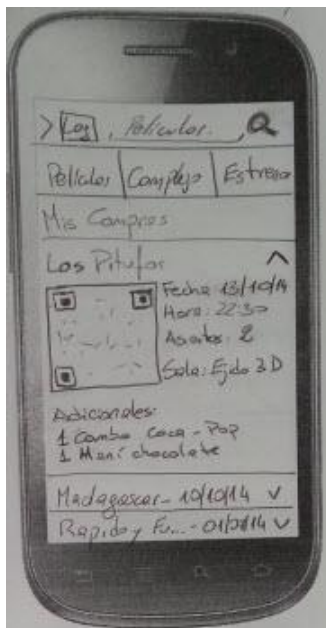 > Log, Películas.
Películas Complejo Estreno
Mis Compras
Los Pitufos
Fecha 13/10/14
Hora: 22:30
Asientos: 2
Sala: Ejido 3D
Adicionales:
1 Combo Coca - Pop
1 Maní chocolate
Madagascar - 10/10/14 v
Rapido y Fu... - 01/ /14 v